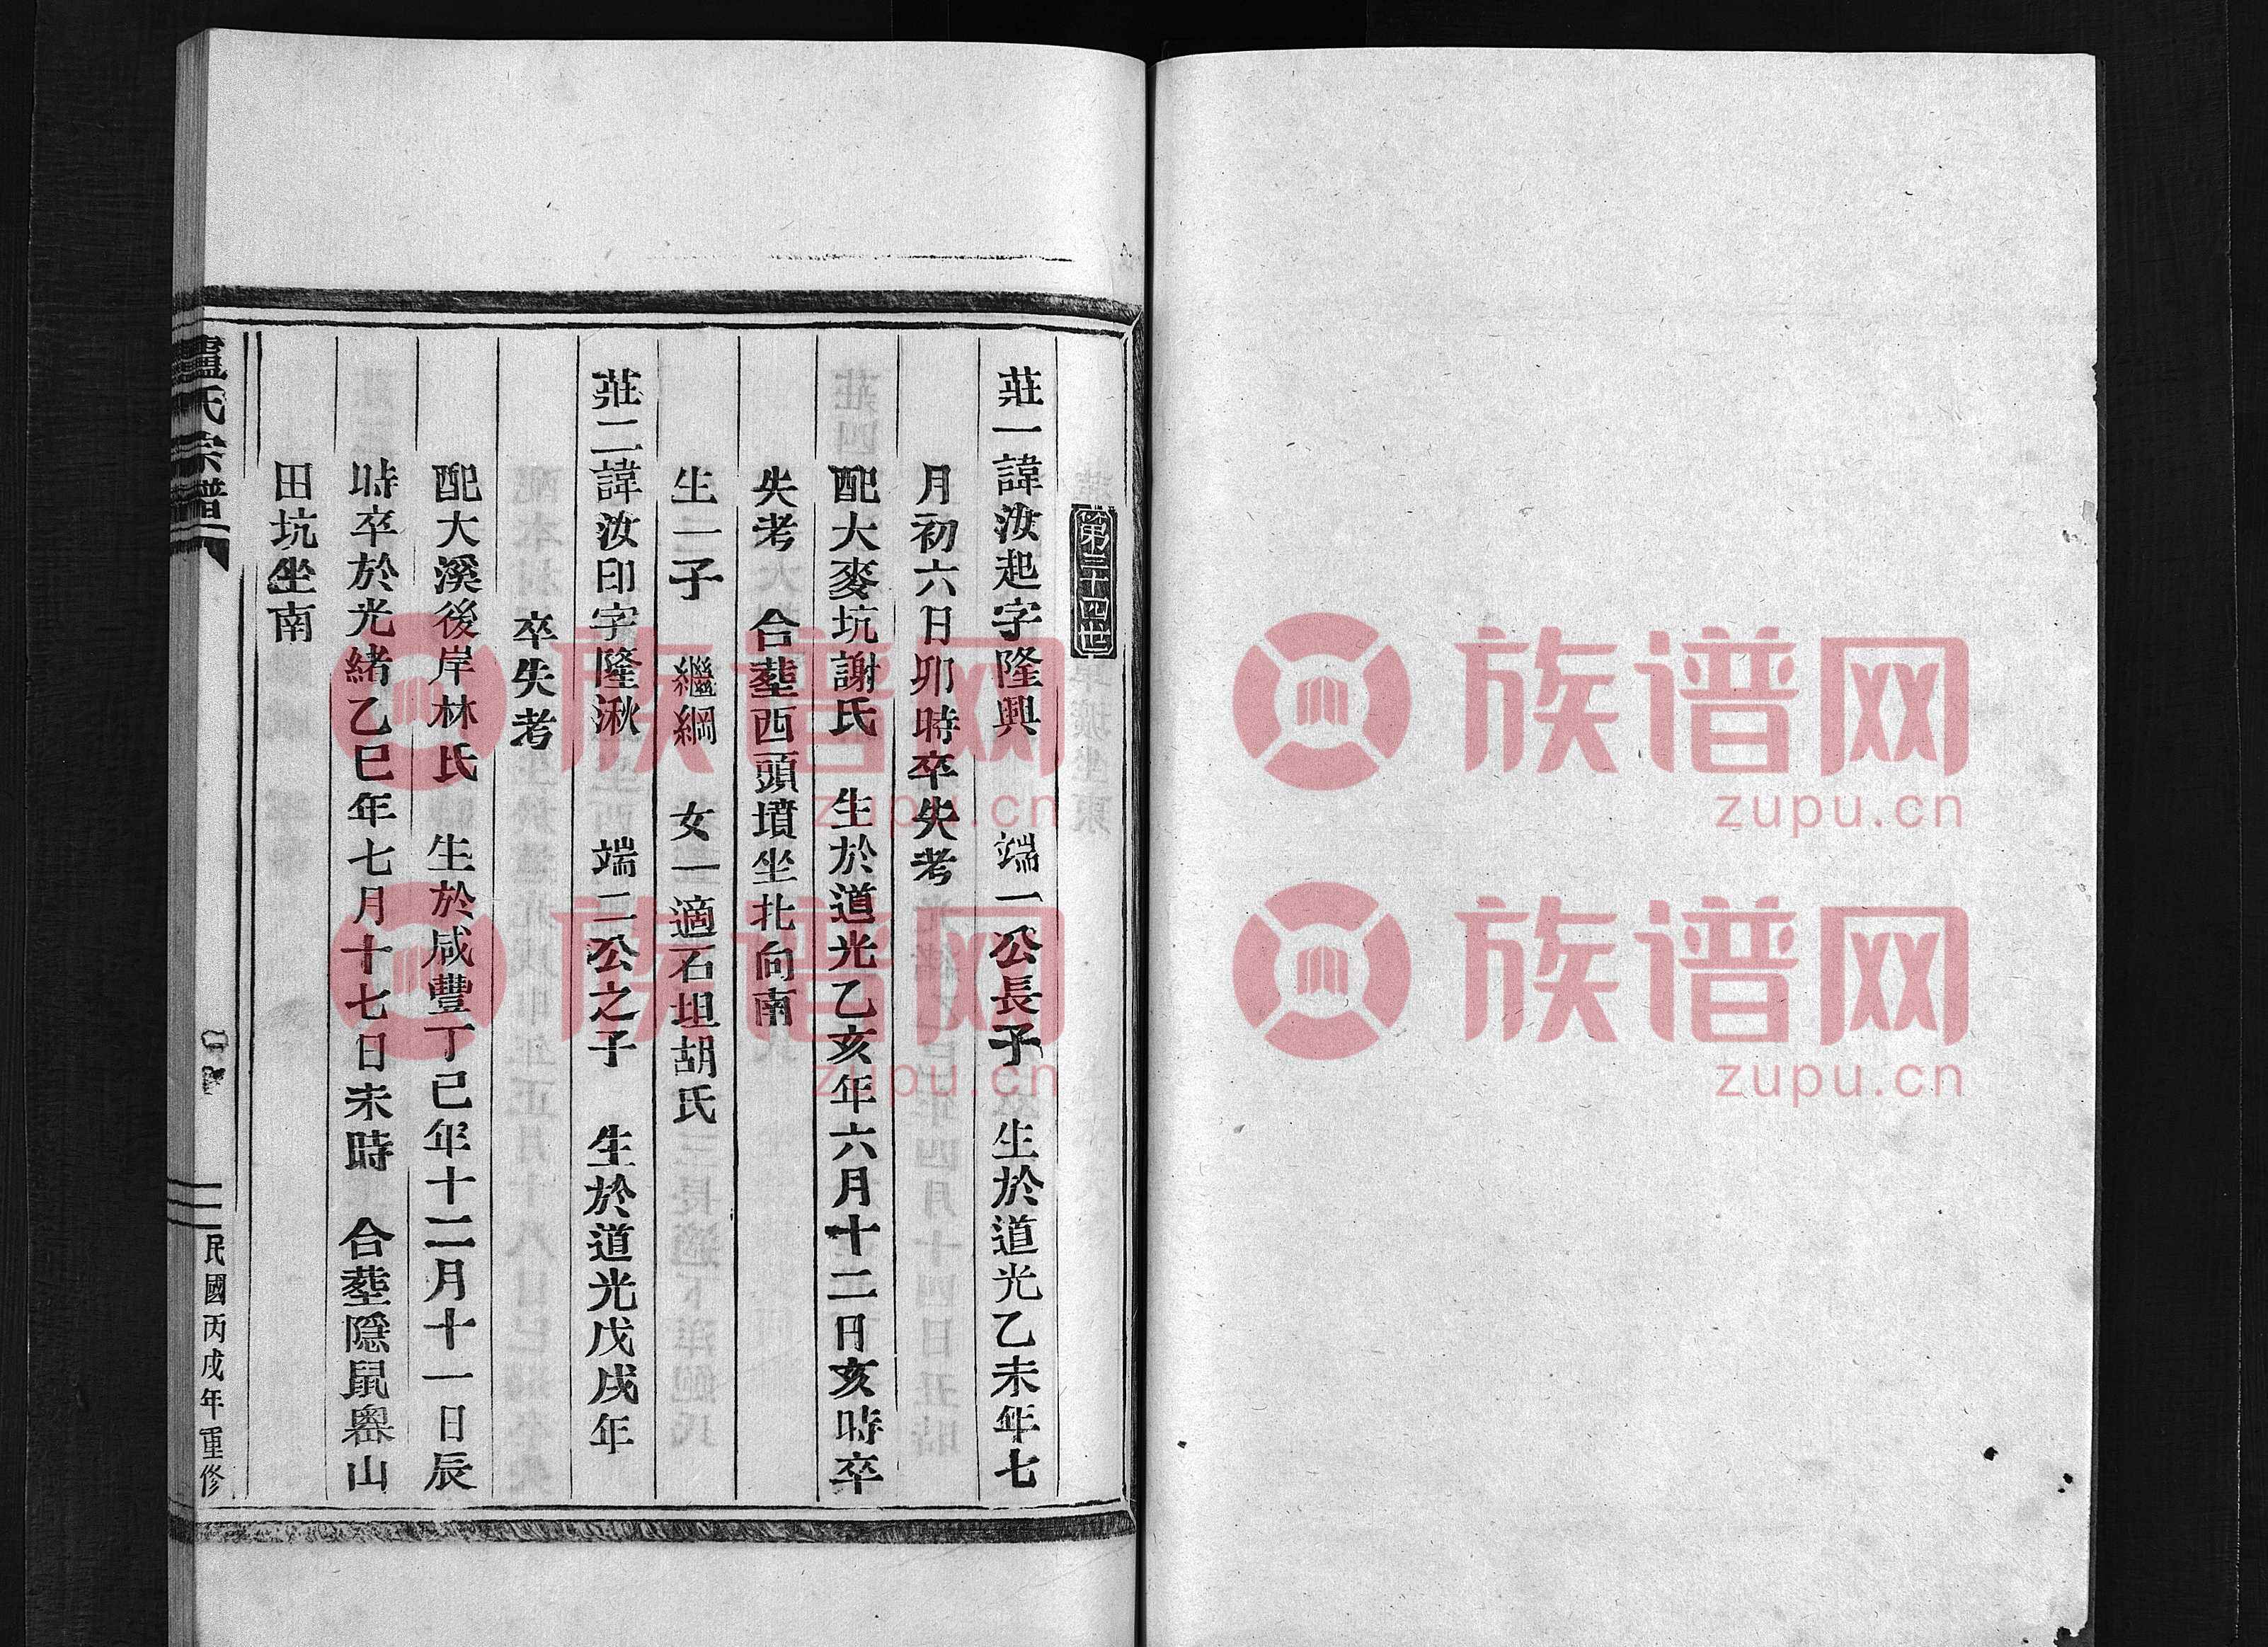 第三十四世
莊一諱汝起字隆興 端一公長子 生於道光乙未年七
月初六日卯時卒失考
配大麥坑謝氏 生於道光乙亥年六月十二日亥時卒
失考 合塟西頭墳坐北向南
生一子 繼綱 女一適石坦胡氏
莊二諱汝印字隆湫 端二公之子 生於道光戊戌年
卒失考
配大溪後岸林氏 生於咸豐丁巳年十二月十一日辰
時卒於光緒乙巳年七月十七日未時 合塟隱鼠嶴山
田坑坐南
盧氏宗譜
民國丙戌年重修
族谱网
zupu.cn
族谱网
zupu.cn
族谱网
zupu.cn
族谱网
zupu.cn